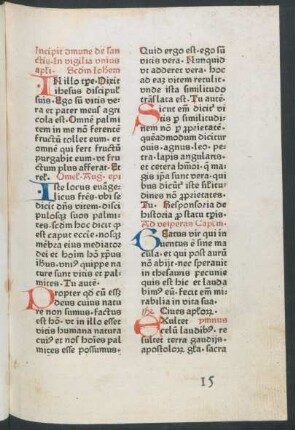 Incipit omune de san
ctis. In vigilia vnius
apli. Scdm Johem
In illo tpe. Dixit
Ihesus discipul'
suis. Ego sū vitis ve-
ra et pater meus agri
cola est. Omnē palmi
tem in me nō ferentē
fructū tollet eum. et
omnē qui fert fructū
purgabit eum. vt fru
ctum plus afferat. Et
rel'. Omel'. Aug. epi
Iste locus euāge-
licus frēs. vbi se
dicit dn̄s vitem. et disci
pulos suos palmi-
tes. scdm hoc dicit qp
est caput ecce. nosqz
mēbra eius mediator
dei et hoīm hō xpus
ihus. vni' quippe na
ture sunt vitis et pal-
mites. Tu autē
Propter qd cū ess3
deus cuius natu
re non sumus. factus
est hō. vt in illo esset
vitis humana natura
cui' et nos hoīes pal-
mites esse possumus.
Quid ergo est. ego sū
vitis vera. Nunquid
vt adderet vera. hoc
ad eaz vitem retulit.
vnde ista similitudo
trāslata est. Tu autē.
Sicut em̄ dicit' vi
tis p similitudi-
nem nō p pprietatē.
quēadmodum dicitur
ouis. agnus. leo. pe-
tra. lapis angularis.
et cetera hmōi. q ma-
gis ipa sunt vera. qui
bus dicūt' iste silitu-
dines nō pprietates.
Tu. Responsoria de
historia p statu tpis.
Ad vesperas Capl'm
Beatus vir qui in
uentus ē sine ma
cula. et qui post aurū
nō abijt. nec sperauit
in thesauris pecunie
quis est hic et laudabi
bim' eū. fecit em̄ mi-
rabilia in vita sua.
Cuius aplorz.
Exultet ymnus
celū laudib'. re
sultet terra gaudijs.
apostolorz gl'a sacra
15